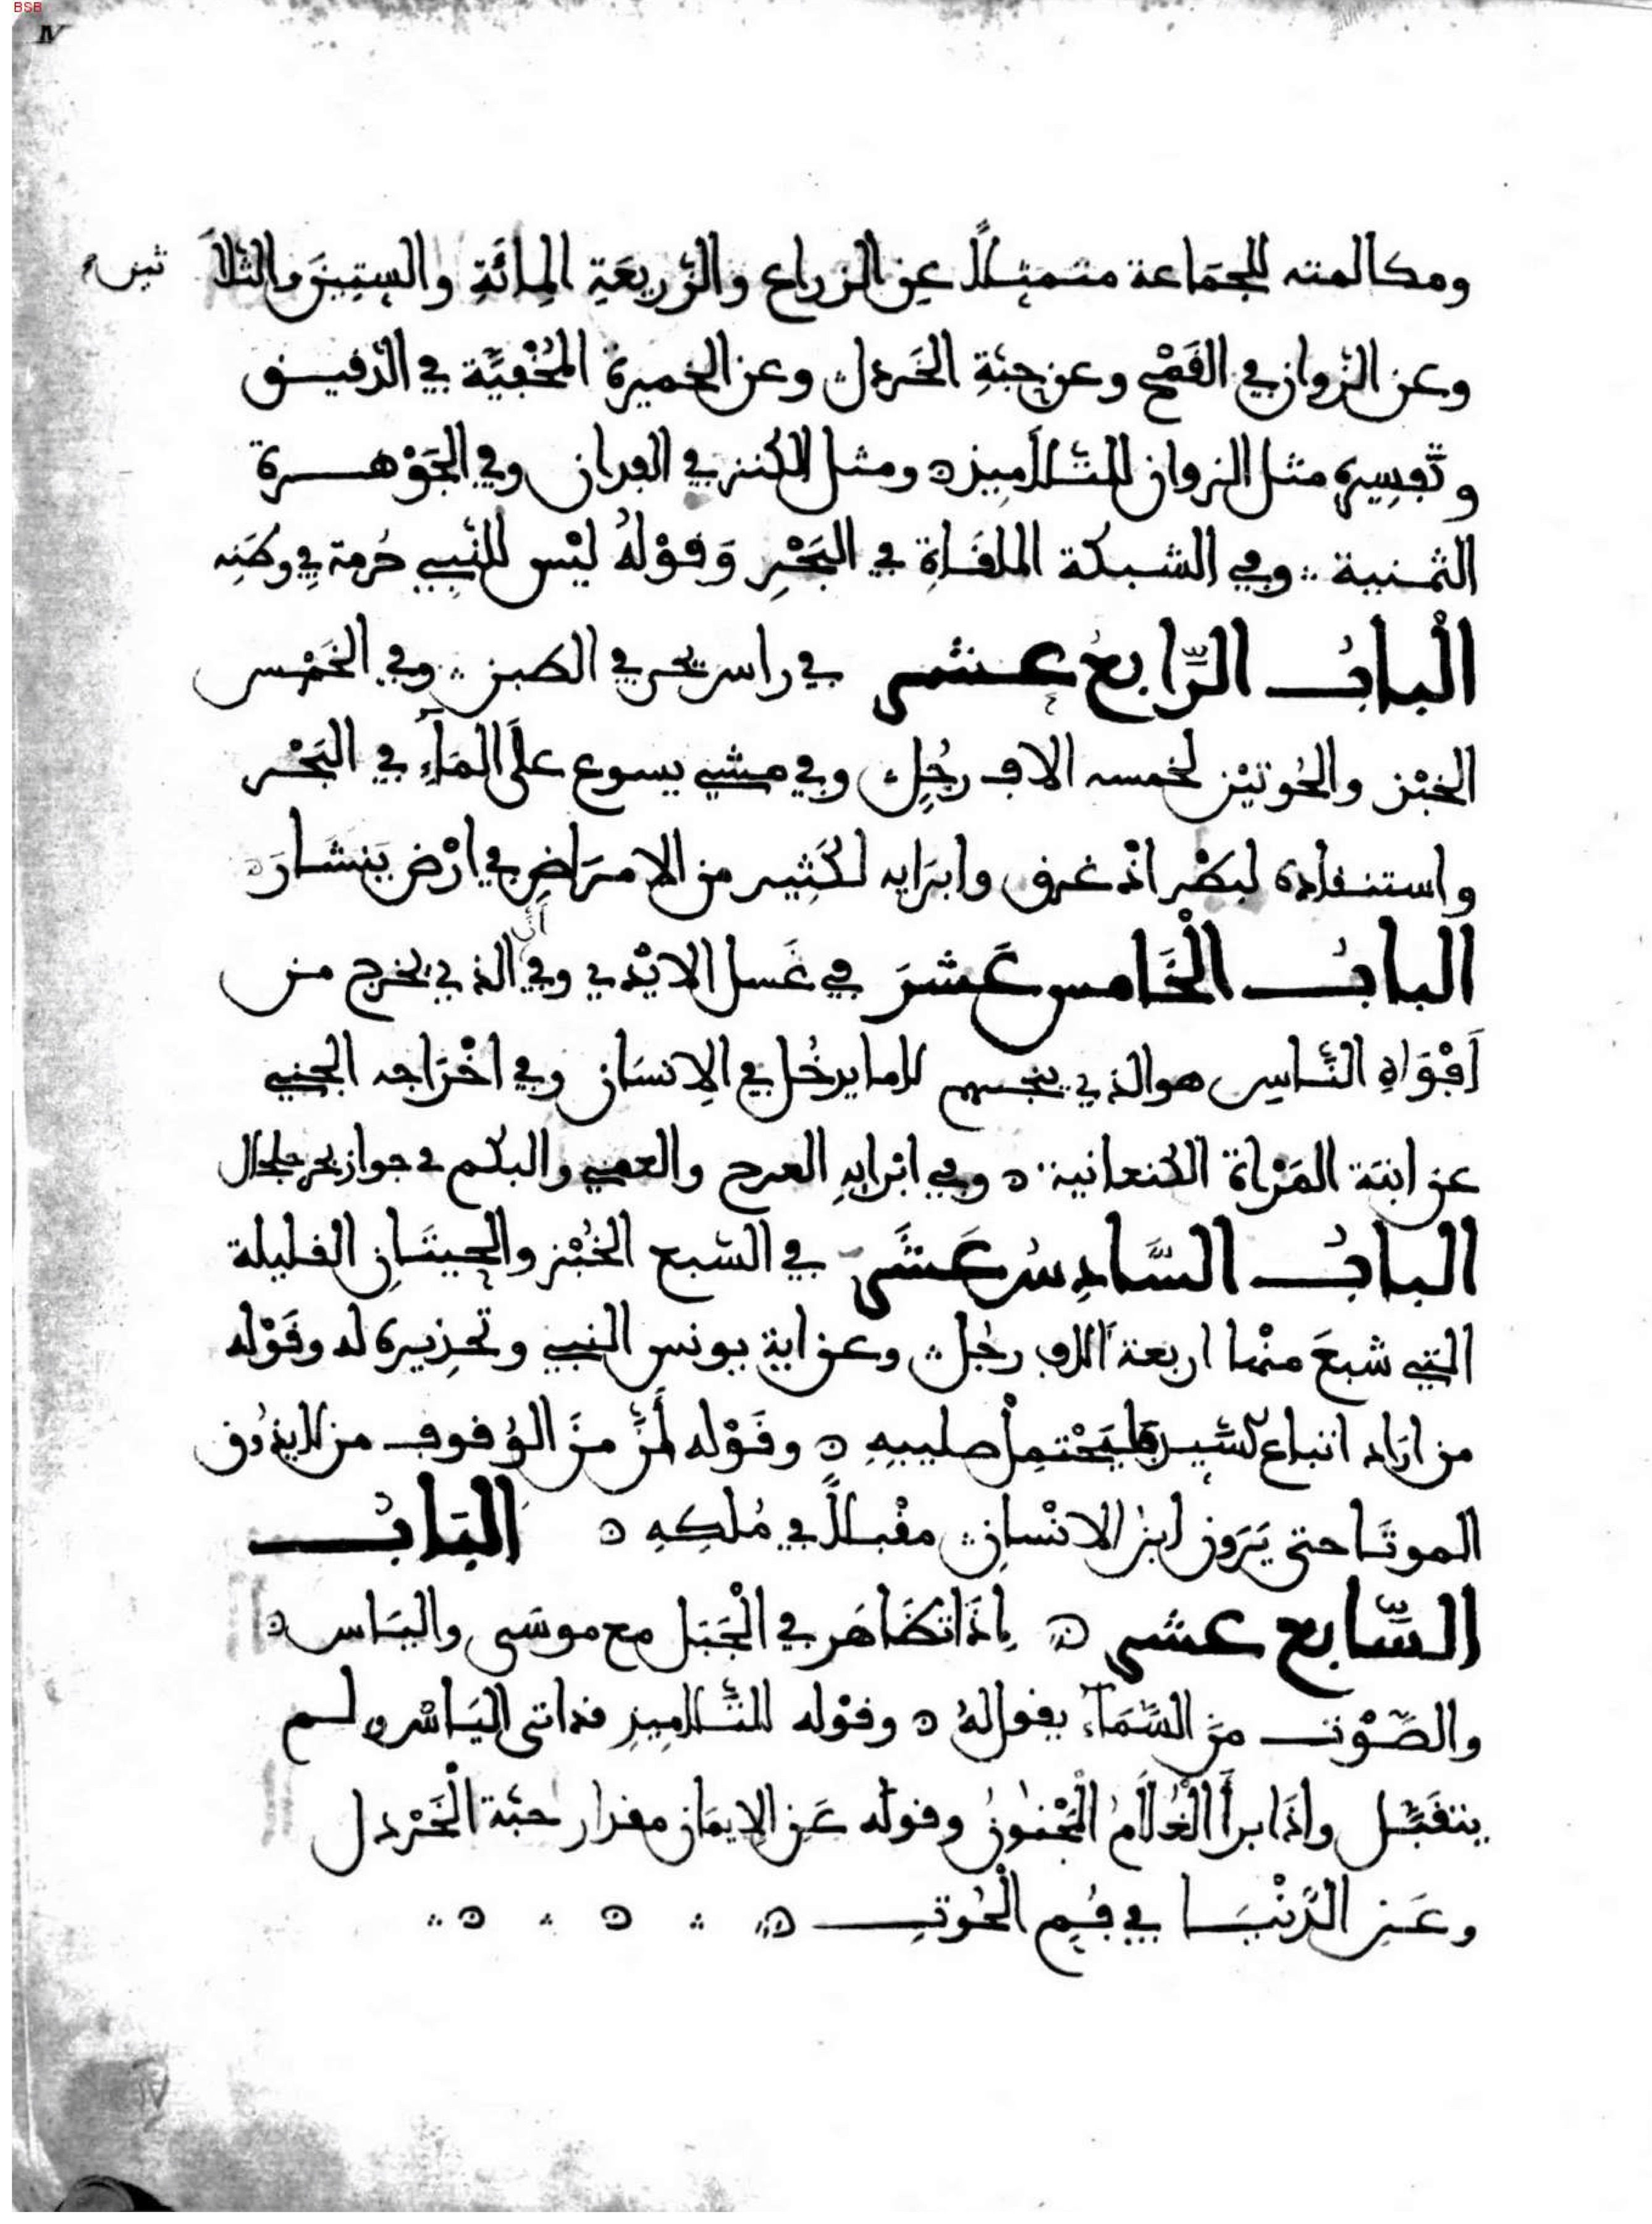 BSB
IV
ومكالمته للجمَاعة متمثلاً عن الزراع والزريعَةِ المِائَةِ والستِينَ والثلاَ ثين
وعن الزوان في القَمْحِ وعن حبَّةِ الخَردل وعن الخميرة المُخْفيَّة في الدقيــق
وتفسِيره مثل الزوان للتلاَميذ ومثل الكنز في الفدان وفي الجَوْهــرة
الثمنية وفي الشبكة الملقَاةِ في البَحْرِ وَقوْلهُ ليْس للنّبيي حُرمة في وطَنِه
الْبابُ الرَّابعُ عشر في راس يحيى في الطبق وفي الخَمْس
الخبْز والحُوتيْن لخمسه الاف رجُلٍ وفي مشي يسوع علَى المَآءِ في البَحْر
واستنقاذه لبطْر اذْ غرق وابرَايه لكَثِير من الامرَاضِ في ارْض يَنشَارَ
البابُ الْخَامس عَشَرَ في غَسل الايْدي وفي أنَّ الذي يخرج من
اَفْوَاهِ النَّاسِ هو الذي ينجسهم لاما يدخُل في الاِنسَان وفي اخْرَاجه الجني
عن ابنَة المَرْأة الكنعانية وفي ابْرايهِ العرج والعمي والبكم في جواز بحر جلجال
البابُ السَّادِسُ عَشَر في السّبع الخُبْز والحِيتَانِ القليلة
التي شبعَ منْها اربعة اَلاف رجُل وعن اية يونس النبي وتحذِيره له وقَوْله
من ارَاد اتباع لسَّير فليَحْتمِلْ صليبهِ وقَوْله لَمَنْ منَ الوُقوف من لا يذُوق
الموتَا حتى يَرَون ابنَ الانْسان مقْبلاً في مُلكِهِ البَابُ
السَّابع عشر اِذَا تظَاهَر في الْجَبَل مع موسَى واليَاس
والصَّوْت منَ السَّمَآء بقوالهُ وقوْله للتَّلاميذِ قد اتى اليَاسْ ولم
يتقبَّل واذَا برأ الْغُلاَمُ الْمَجْنونُ وقوله عَنِ الايمَان مقدار حبَّة الْخَرْدل
وعَنِ الدّنْيَا في فُمِ الْحُوتِ
IV